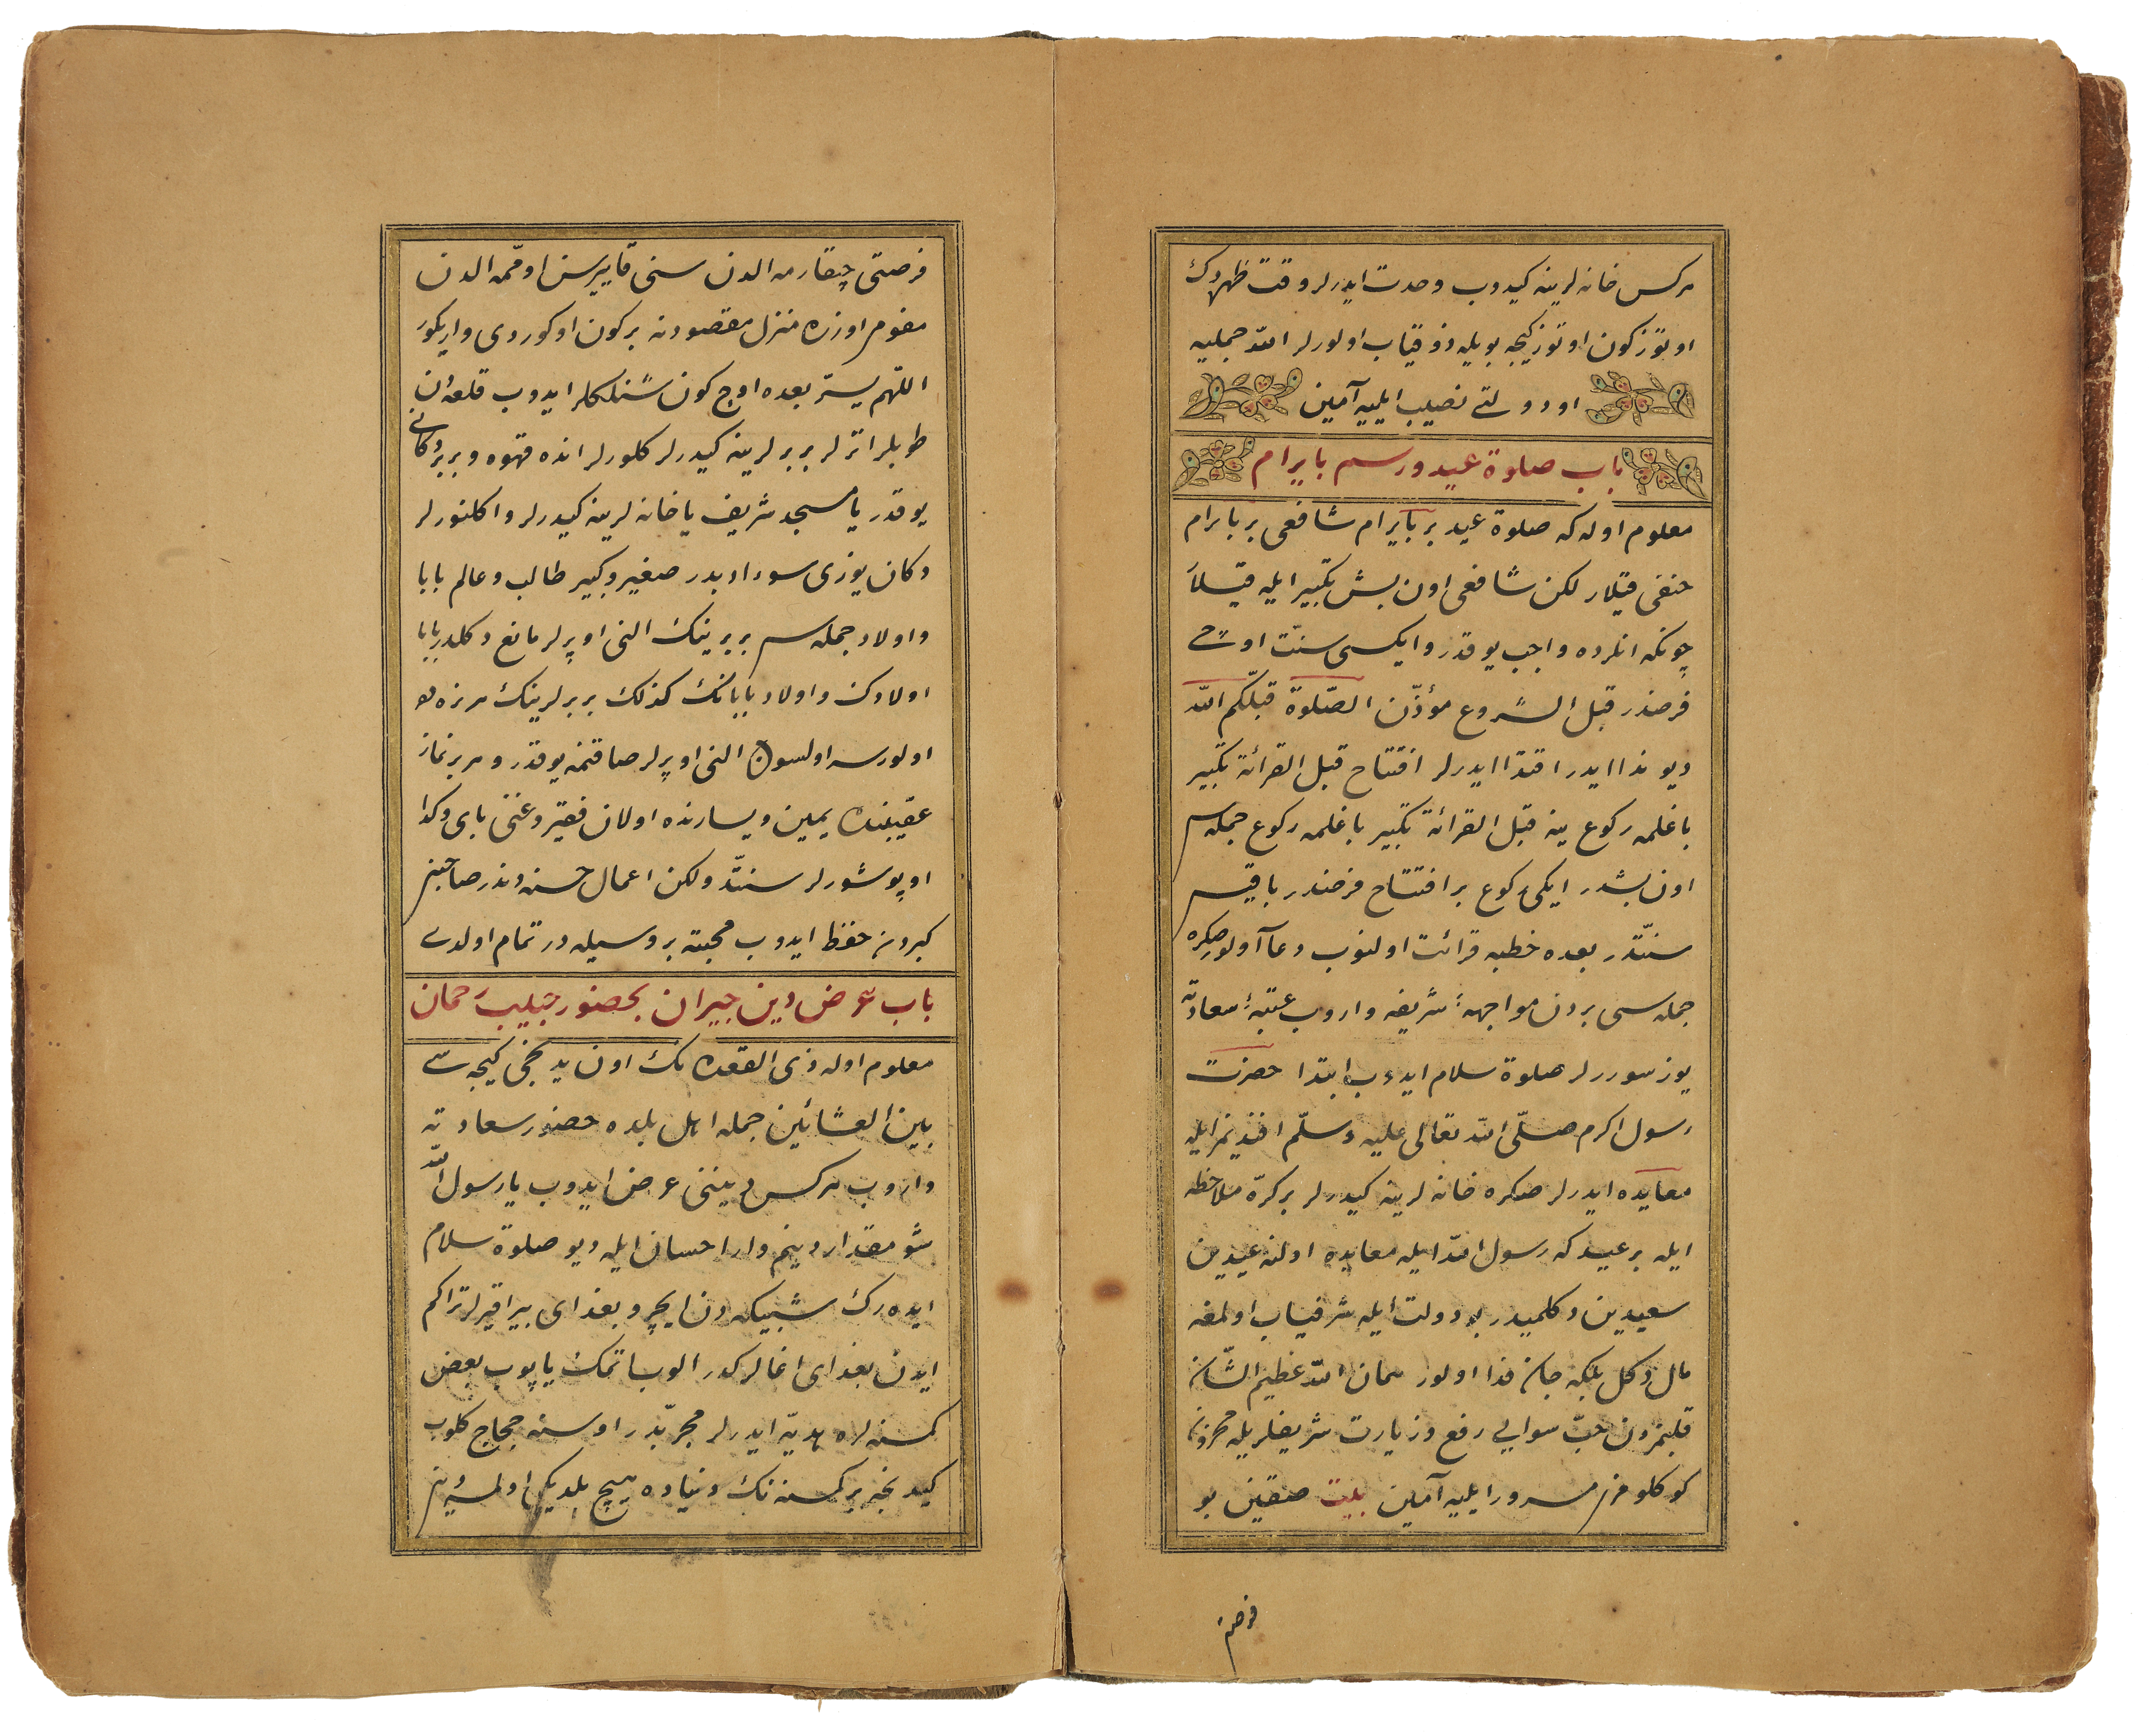 هركس خانه‌لرينه كيدوب وحدت ايدرلر وقت ظهره دك
اوتوز كون اوتوز كيجه بويله ذوقياب اولورلر الله جمله‌يه
او دولتى نصيب ايليه آمين
باب صلوة عيد ورسم بايرام
معلوم اوله كه صلوة عيد بر بايرام شافعى بر بايرام
حنفى قيلار لكن شافعى اون بش تكبير ايله قيلار
چونكه انلرده واجب يوقدر و ايكيسى سنت اوچى
فرضدر قبل الشروع مؤذّن الصّلوة قبلكم الله
ديو ندا ايدر اقتدا ايدرلر افتتاح قبل القرائة تكبير
باغلمه ركوع ينه قبل القرائة تكبير باغلمه ركوع جمله‌سى
اون بشدر ايكى ركوع بر افتتاح فرضدر باقيسى
سنّتدر بعده خطبه قرائت اولنوب دعا اولور صكره
جمله‌سى بردن مواجهۀ شريفه واروب عتبۀ سعادته
يوز سوررلر صلوة سلام ايدوب ابتدا حضرت
رسول اكرم صلّى الله تعالى عليه وسلّم افنديمز ايله
معايده ايدرلر صكره خانه‌لرينه كيدرلر بر كرّه ملاحظه
ايله بر عيد كه رسول الله ايله معايده اولنه عيدين
سعيدين دكلميدر بو دولت ايله شرفياب اولمغه
مال دكل بلكه جان فدا اولور همان الله عظيم الشّان
قلبمزدن حبّ سوايى رفع و زيارت شريفلريله محزون
كوكلومزى مسرور ايليه آمين بيت صقين بو
فرصتى
فرصتى چيقارمه الدن سنى قاپيرسن اوقمه الدن
مفهومى اوزره منزل مقصودنه بر كون اوكوردى واريكور
اللهم يسّر بعده اوچ كون شنلكلر ايدوب قلعه‌دن
طوپلر اتزلر بربرلرينه كيدرلر كلورلر انده قهوه و بربر دكانى
يوقدر يا مسجد شريف يا خانه‌لرينه كيدرلر و اكلنورلر
دكان يوزى سوء ادبدر صغير وكبير طالب وعالم بابا
و اولاد جمله‌سى بربرينك النى اوپرلر مانع دكلدر بابا
اولادك و اولاد بابانك كذلك بربرلرينك هر نره‌ده
اولورسه اولسون النى اوپرلر صاقنمه يوقدر و هر بر نماز
عقيبنده يمين ويسارنده اولان فقير وغنى باى وكدا
اوپوشورلر سنّتدر ولكن اعمال حسنه‌دندر صاحبنى
كبردن حفظ ايدوب محبته بر وسيله‌در تمام اولدى
باب عرض دين جيران بحضور حبيب رحمان
معلوم اوله ذى القعده‌نك اون يدنجى كيجه‌سى
بين العشائين جمله اهل بلده حضور سعادته
واروب هركس ديننى عرض ايدوب يا رسول الله
شو مقدار دينم وار احسان ايله ديو صلوة سلام
ايده‌رك شبيكه‌دن ايچرو بغداى بيراقيرلر تراكم
ايدن بغداى اغالر كدر الوب اتمك ياپوب بعض
كمسنه‌لره هديّه ايدرلر مجرّبدر او سنه حجاج كلوب
كيدنجه بر كمسنه‌نك دنياده هيچ بلديكى اولميه‌نى